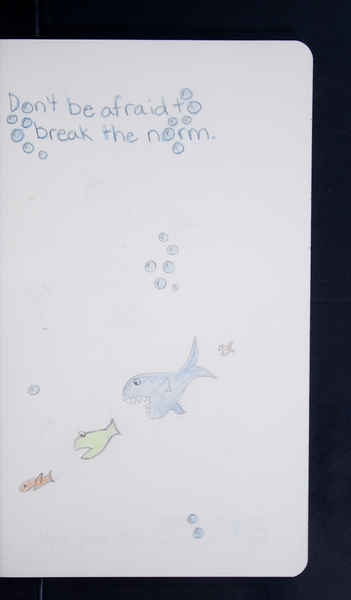 Don't be afraid to
break the norm.